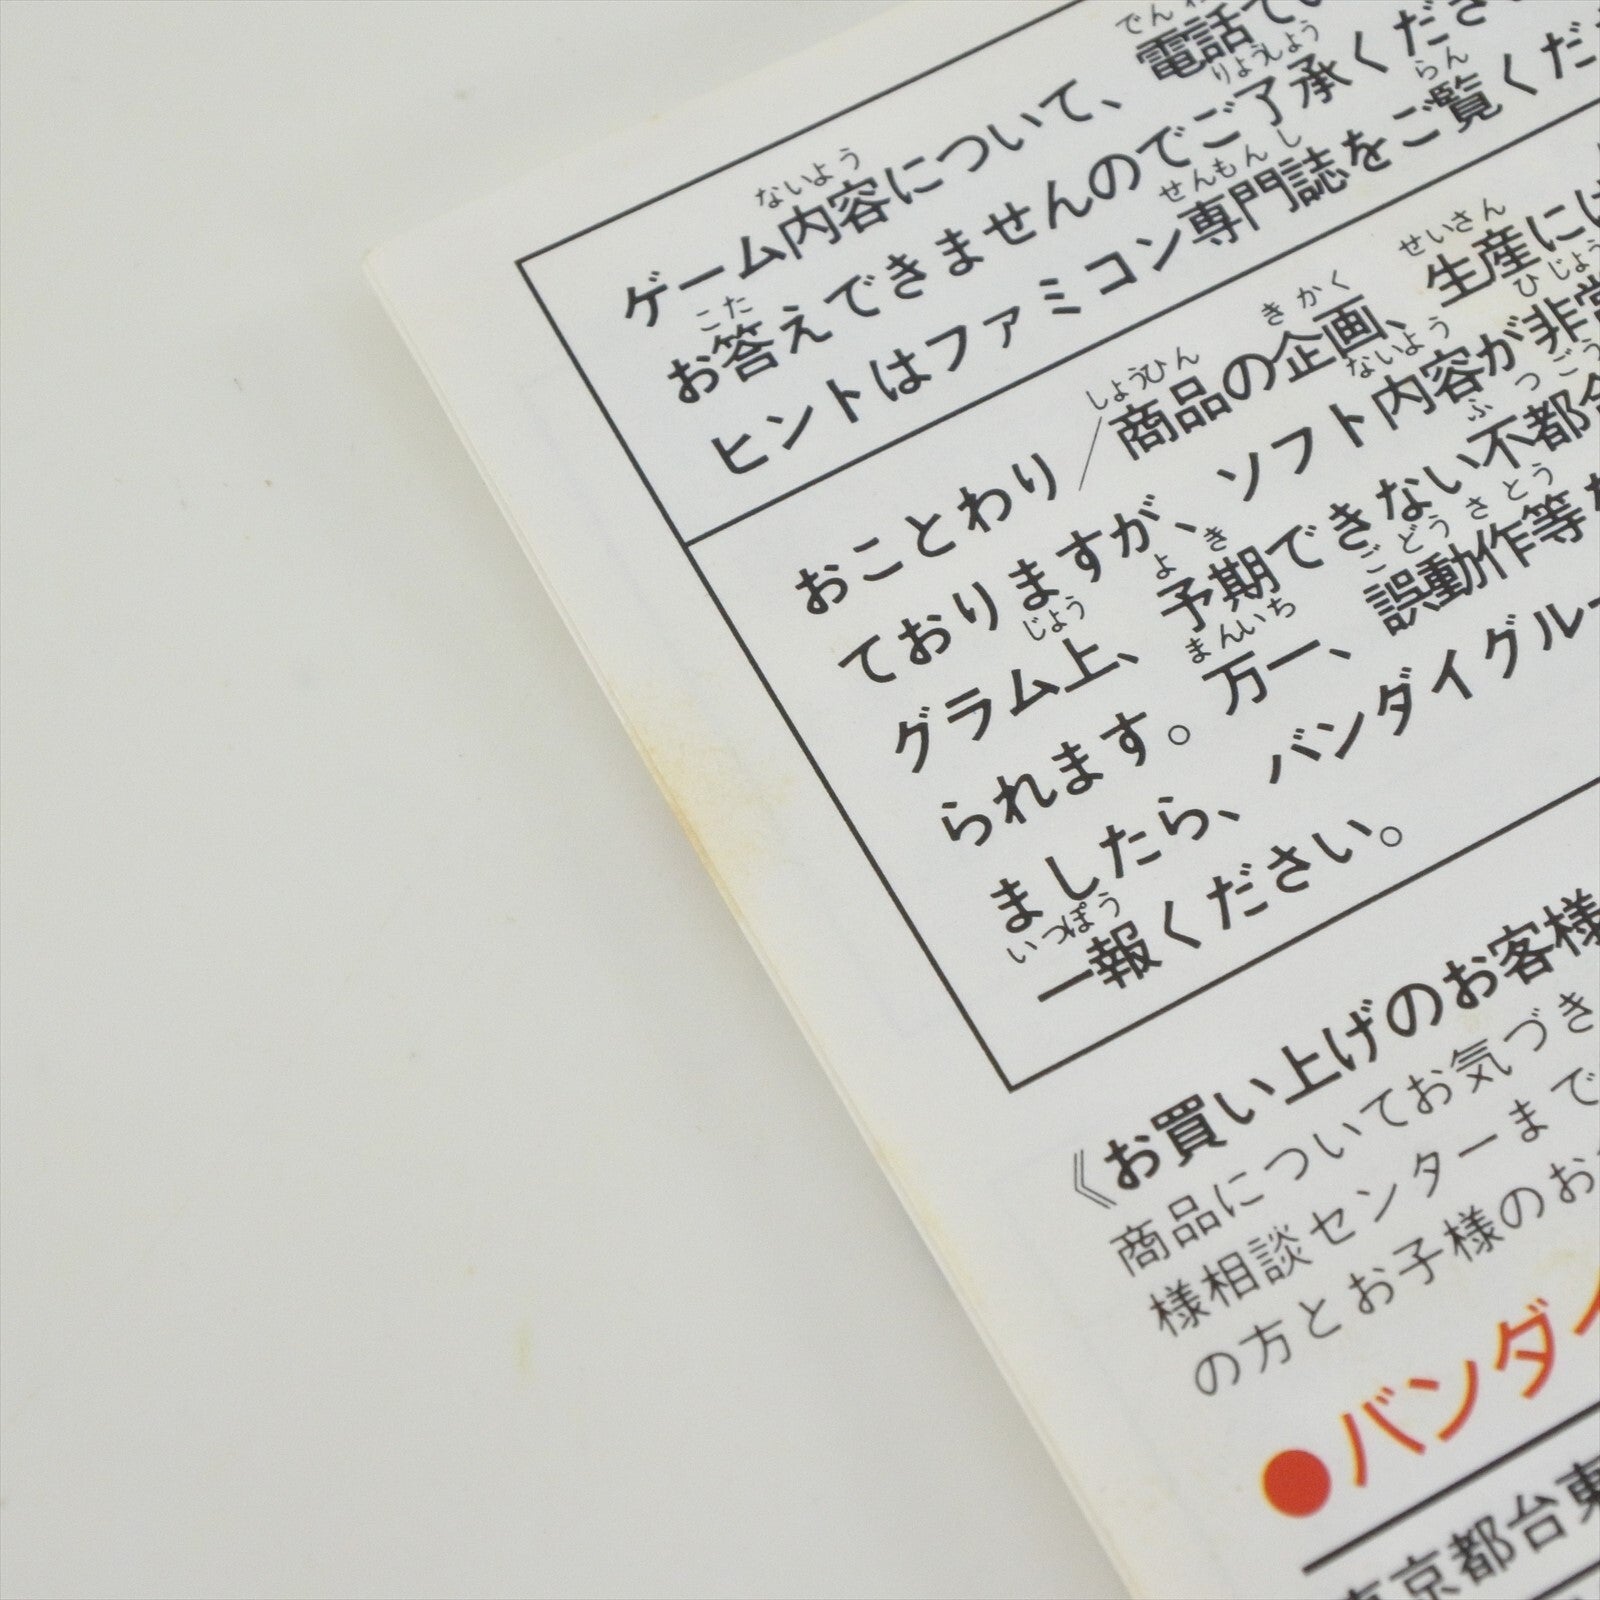 ゲーム内容について、電話で
お答えできませんのでご了承くださ
ヒントはファミコン専門誌をご覧くだ
おことわり/商品の企画、生産には
ておりますが、ソフト内容が非常
グラム上、予期できない不都合
られます。万一、誤動作等
ましたら、バンダイグルー
一報ください。
《お買い上げのお客様
商品についてお気づき
様相談センターまで
の方とお子様のお
●バンダイ
東京都台東